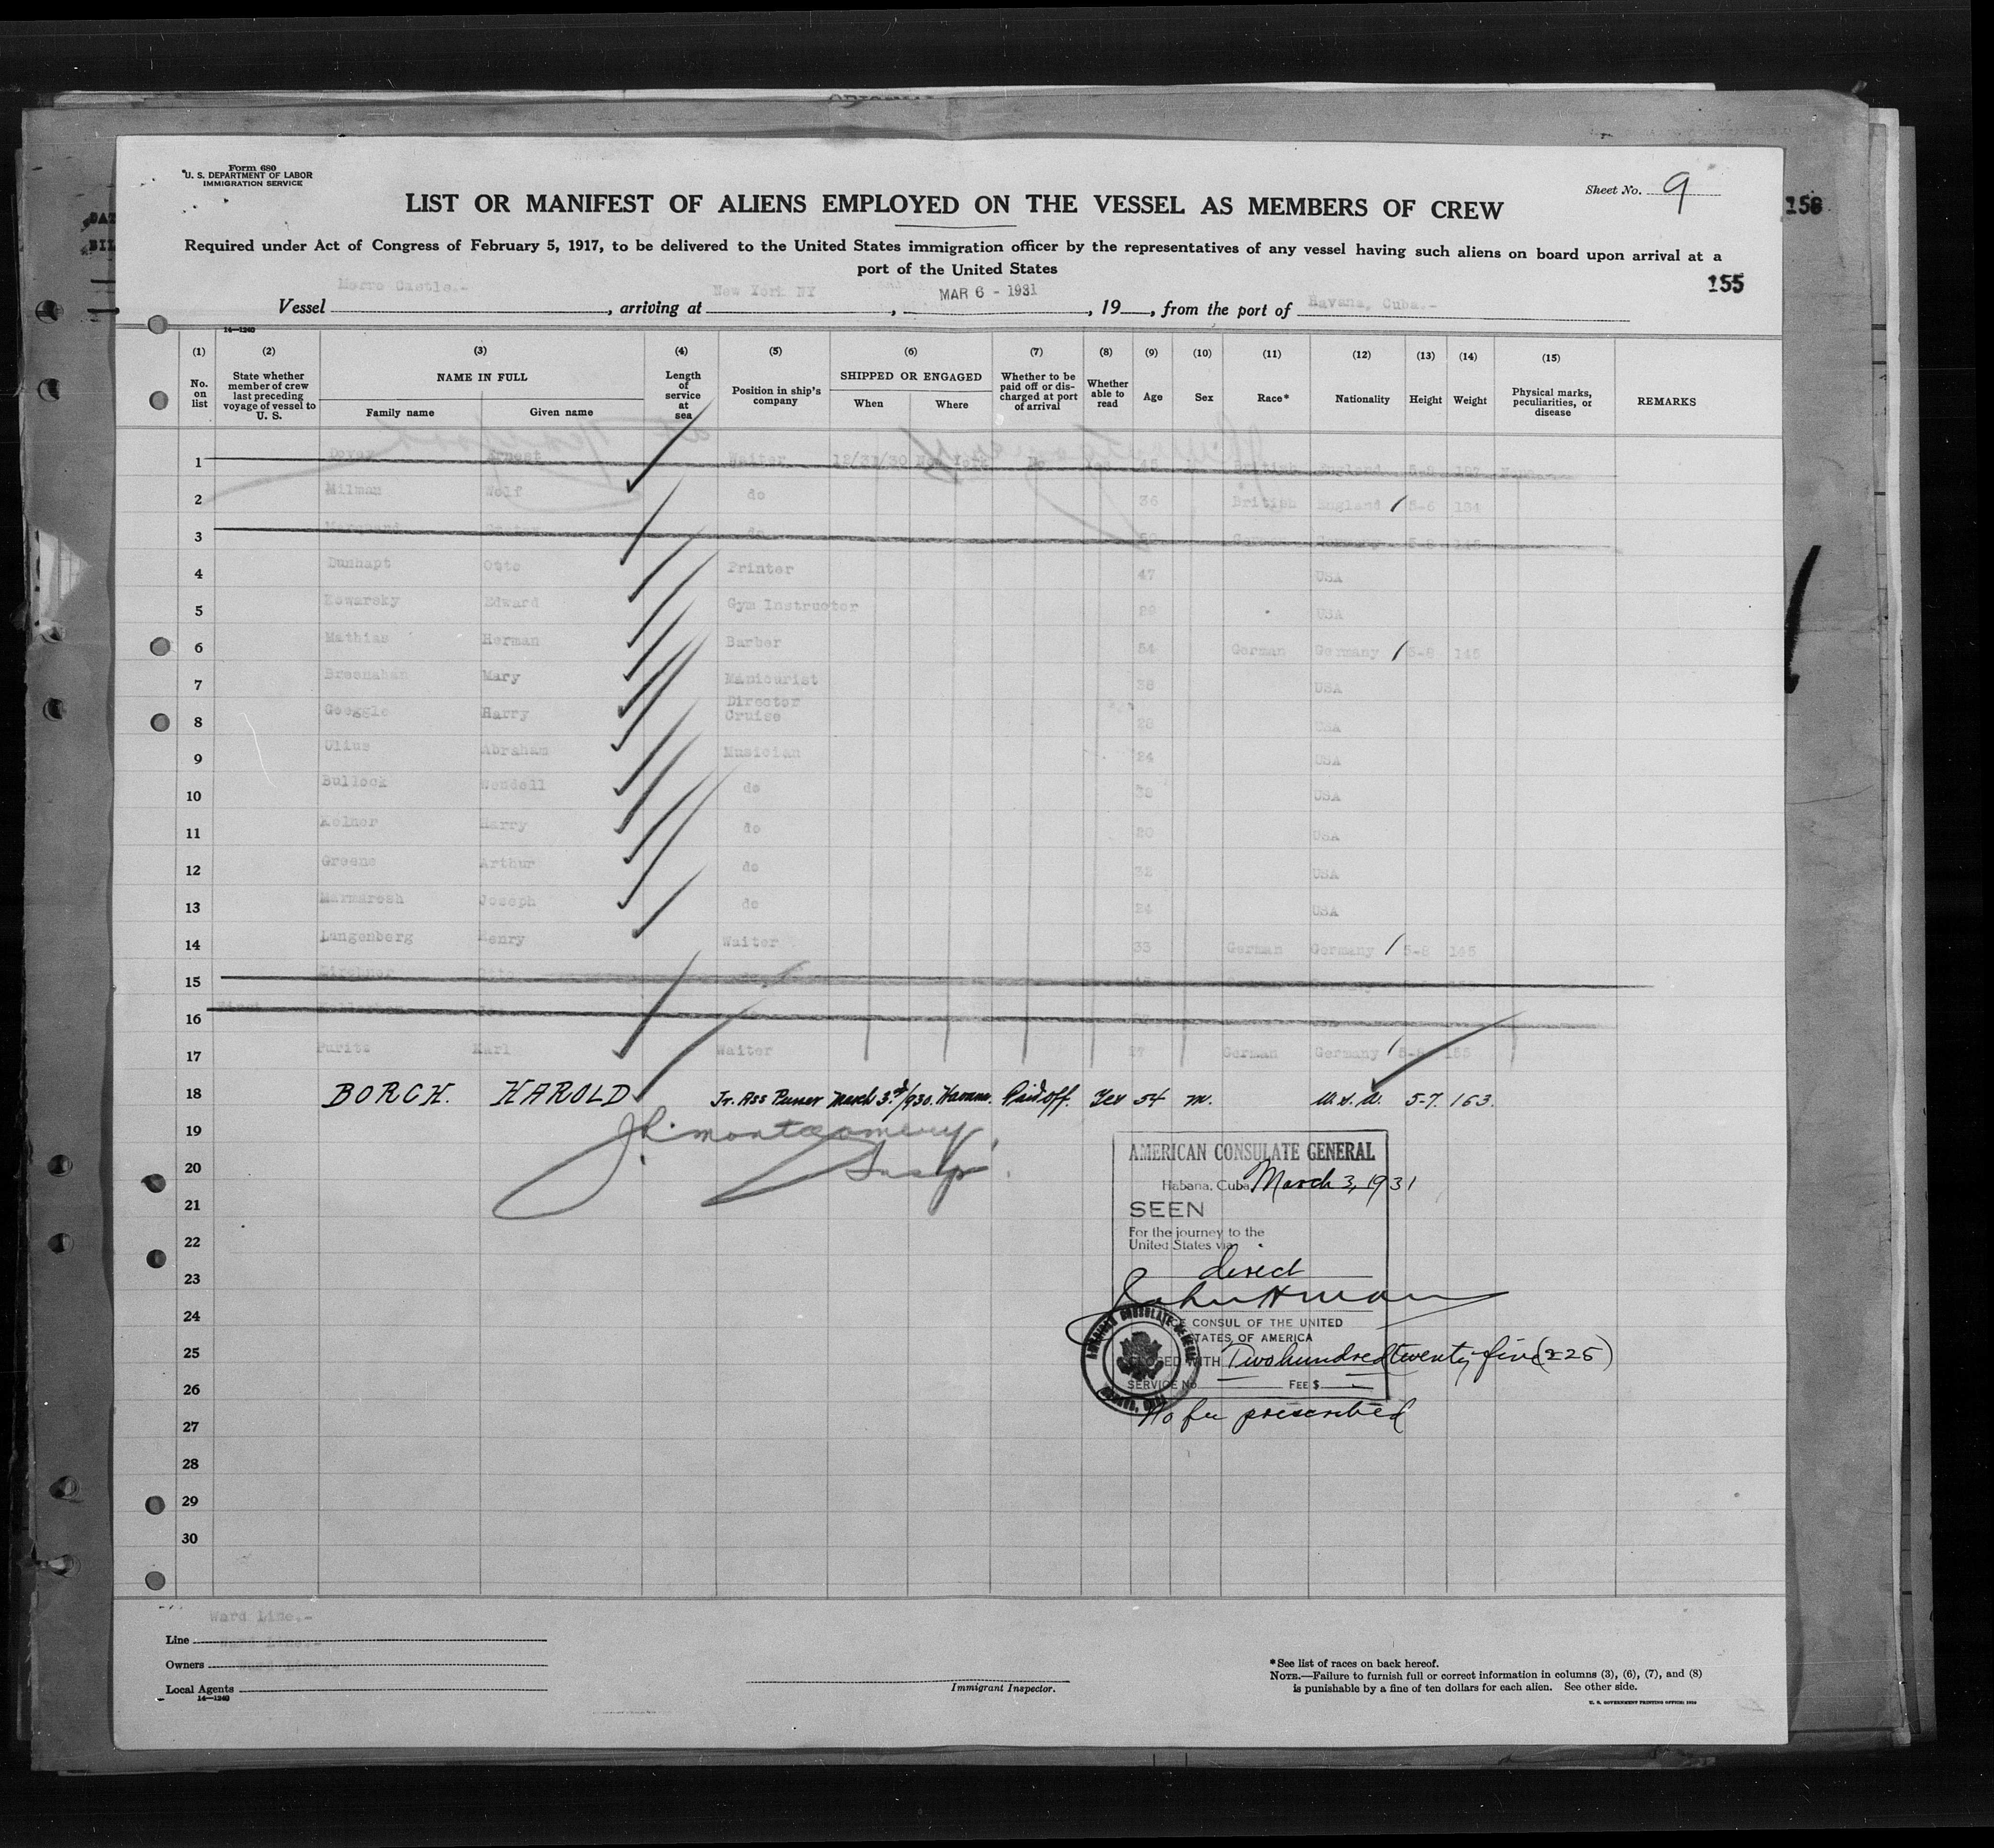 Form 680
U. S. DEPARTMENT OF LABOR
IMMIGRATION SERVICE
Sheet No. 9
LIST OR MANIFEST OF ALIENS EMPLOYED ON THE VESSEL AS MEMBERS OF CREW
156
Required under Act of Congress of February 5, 1917, to be delivered to the United States immigration officer by the representatives of any vessel having such aliens on board upon arrival at a
port of the United States
155
Vessel Morro Castle.-, arriving at New York NY, MAR 6 - 1931, 19__, from the port of Havana, Cuba.-
14—1240
(1) (2) (3) (4) (5) (6) (7) (8) (9) (10) (11) (12) (13) (14) (15)
No. on list
State whether member of crew last preceding voyage of vessel to U. S.
NAME IN FULL
Family name Given name
Length of service at sea
Position in ship's company
SHIPPED OR ENGAGED
When Where
Whether to be paid off or discharged at port of arrival
Whether able to read
Age
Sex
Race*
Nationality
Height
Weight
Physical marks, peculiarities, or disease
REMARKS
1 Ernest Waiter 12/31/30 New York British England 5-8
2 Milman Wolf do 36 British England 5-6 184
3 do Germany 5-8
4 Dunhapt Otto Printer 47 USA
5 Kowarsky Edward Gym Instructor 29 USA
6 Mathias Herman Barber 54 German Germany 5-8 145
7 Bresnahan Mary Manicurist 38 USA
8 Goeggle Harry Director Cruise 28 USA
9 Ulius Abraham Musician 24 USA
10 Bullock Wendell do USA
11 Kolner Harry do 20 USA
12 Greene Arthur do 32 USA
13 Marmarosh Joseph do 24 USA
14 Langenberg Henry Waiter 33 German Germany 5-8 165
15
16
17 Karl Waiter German Germany
18 BORCH. HAROLD Jr. Ass Purser March 3rd/930. Havana. Paid off. Yes 54 m. U.S.A. 5-7. 163.
19 J. R. Montgomery
20 Insp.
21
22
23
24
25
26
27
28
29
30
AMERICAN CONSULATE GENERAL
Habana, Cuba March 3, 1931
SEEN
For the journey to the
United States via
direct
CONSUL OF THE UNITED
STATES OF AMERICA
WITH Two hundred twenty five (225)
SERVICE No. FEE $
No fee prescribed
Ward Line.-
Line
Owners
Local Agents
14—1240
Immigrant Inspector.
*See list of races on back hereof.
NOTE.—Failure to furnish full or correct information in columns (3), (6), (7), and (8)
is punishable by a fine of ten dollars for each alien. See other side.
U. S. GOVERNMENT PRINTING OFFICE